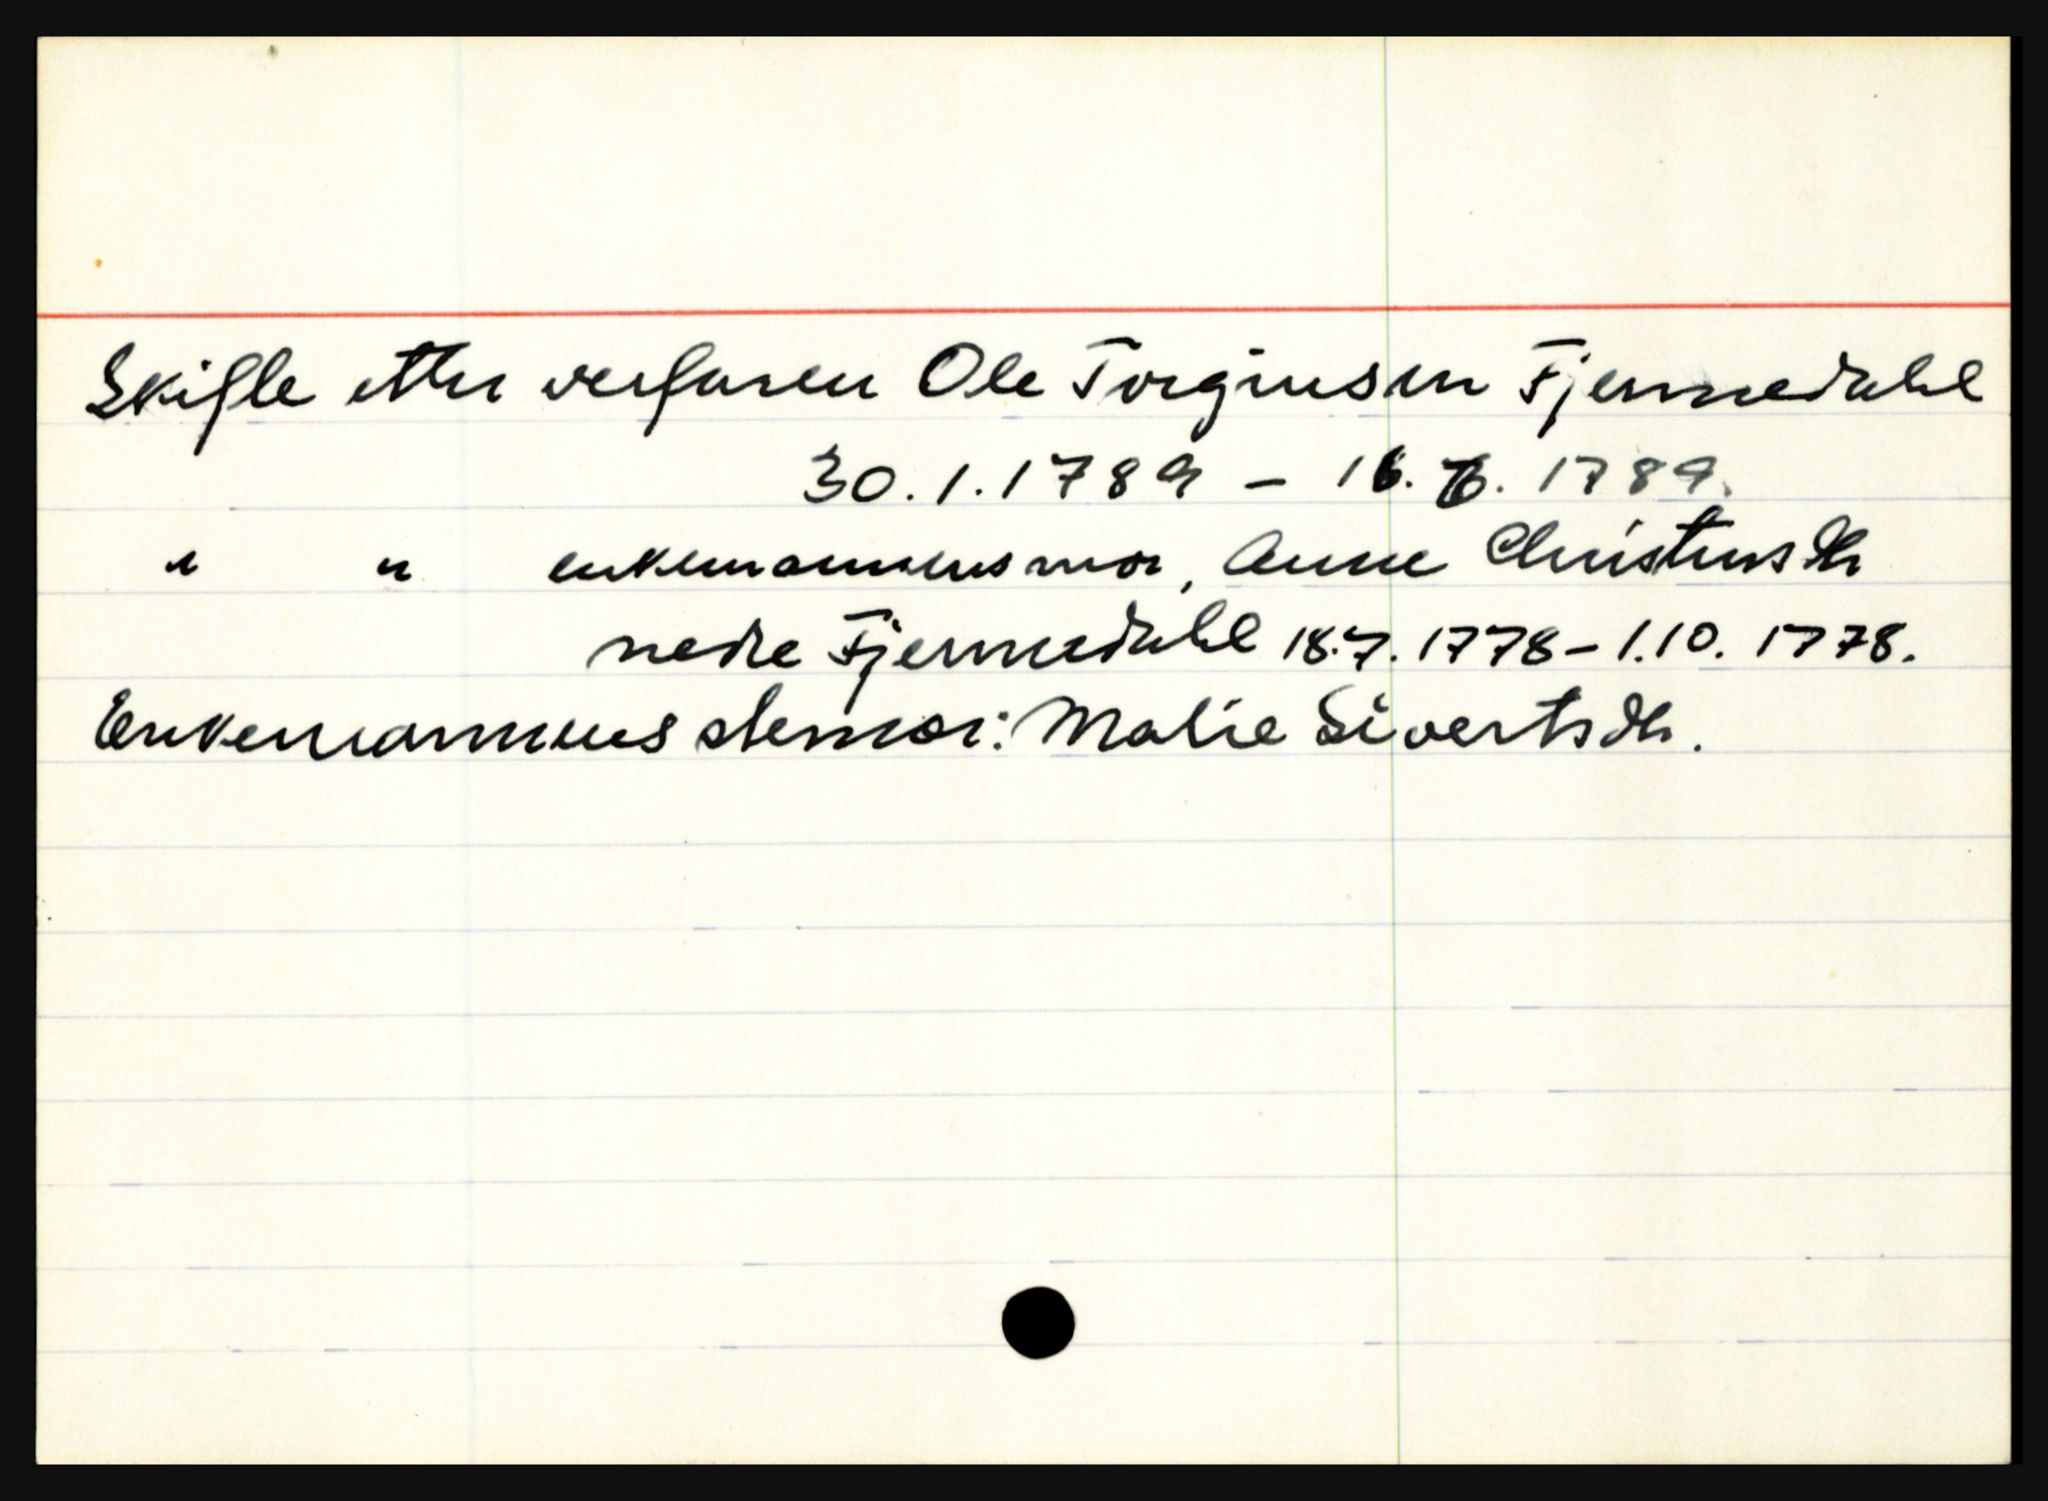 Skifte etter verfaren Ole Torginsen Fjermedahl
30.1.1789 – 16.6.1789.
" " enkemannens mor, Anne Christensdtr
nedre Fjermedahl 18.7.1778 – 1.10.1778.
Enkemannens stemor: Malie Sivertsdtr.